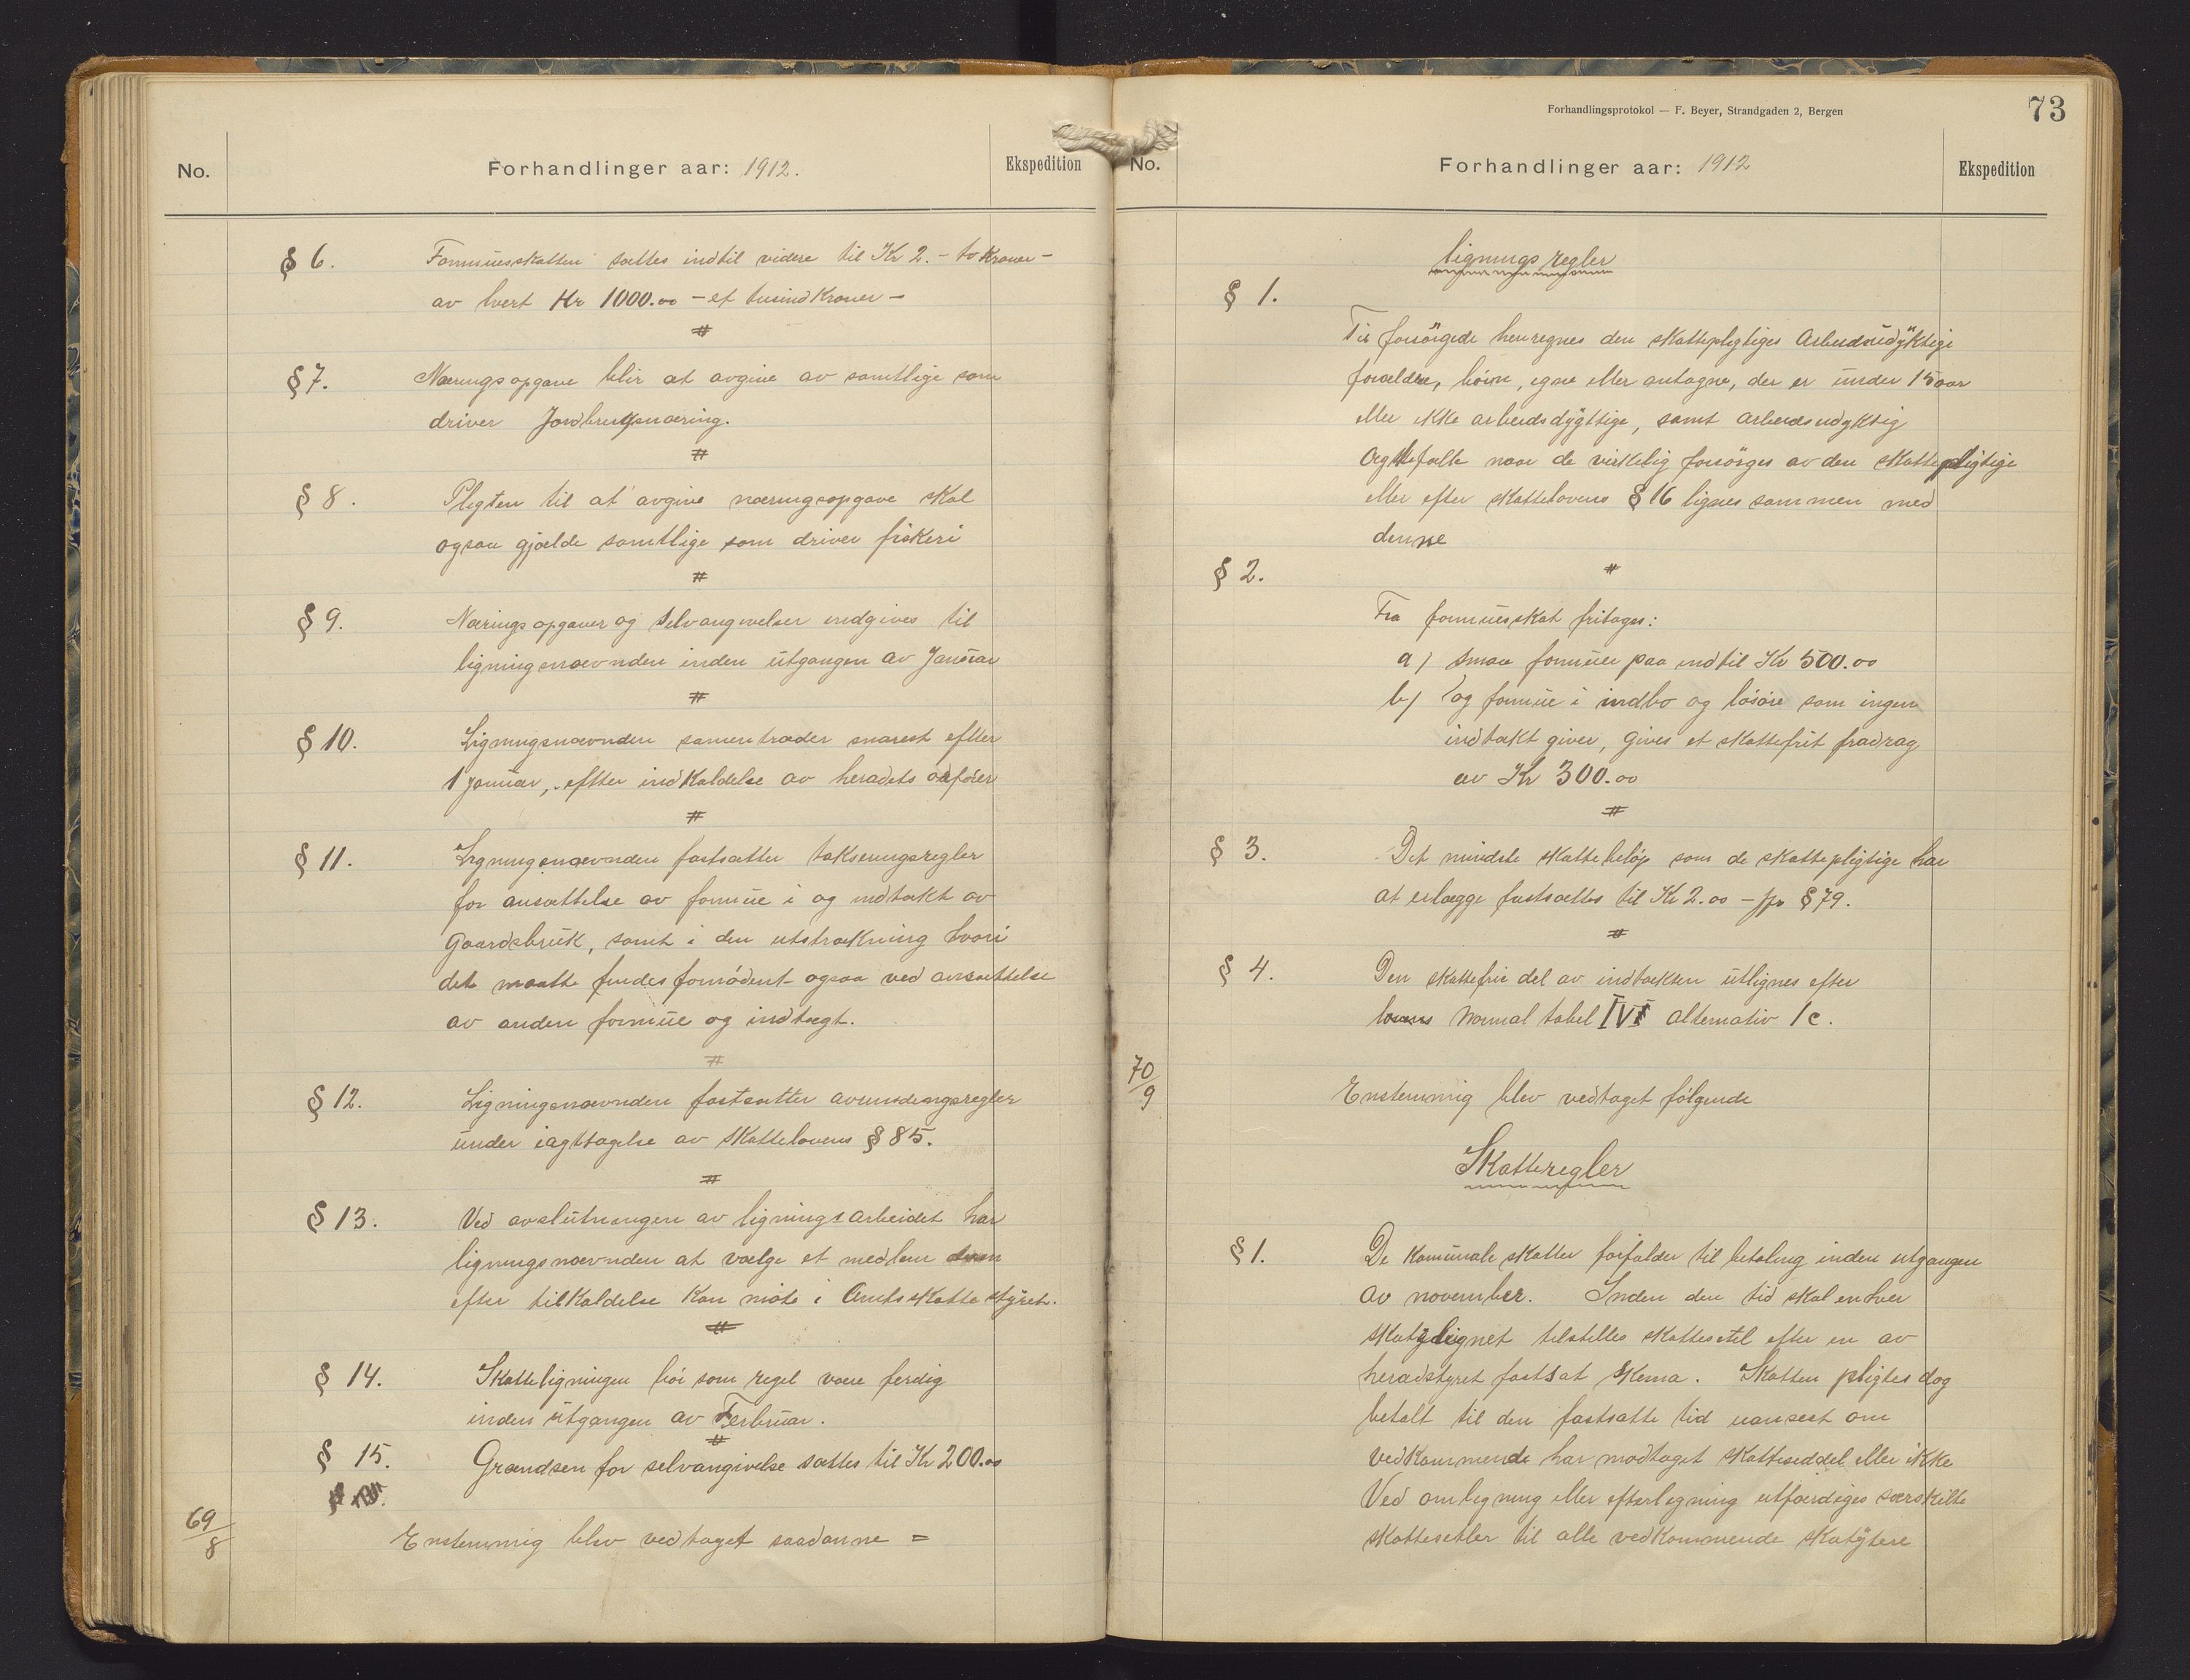 No.
Forhandlinger aar: 1912.
Ekspedition
§ 6. Formuesskatten sættes indtil videre til Kr 2. - to Kroner -
av hvert Kr 1000.00 - et tusind Kroner -
#
§ 7. Næringsopgave blir at avgive av samtlige som
driver Jordbruksnæring.
#
§ 8. Pligten til at avgive næringsopgave skal
ogsaa gjælde samtlige som driver fiskeri
#
§ 9. Næringsopgaver og Selvangivelser indgives til
ligningsnævnden inden utgangen av Januar
#
§ 10. Ligningsnævnden samentræder snarest efter
1 Januar, efter indkaldelse av heradets ordfører
#
§ 11. Ligningsnævnden fastsætter takseringsregler
for ansættelse av formue i og indtækt av
Gaardsbruk, samt i den utstrækning hvori
det maatte findes fornødent ogsaa ved ansættelse
av anden formue og indtægt.
#
§ 12. Ligningsnævnden fastsætter avrundingsregler
under iagttagelse av Skattelovens § 85.
#
§ 13. Ved avslutningen av ligningsarbeidet har
ligningsnævnden at vælge et medlem
efter tilkaldelse Kan møte i Amtsskattestyret.
#
§ 14. Skatteligningen bør som regel være ferdig
inden utgangen av Ferbruar.
#
§ 15. Grændsen for selvangivelse sættes til Kr 200.00
69/8
Enstemmig blev vedtaget saadanne =
Forhandlingsprotokol — F. Beyer, Strandgaden 2, Bergen
73
No.
Forhandlinger aar: 1912
Ekspedition
ligningsregler
§ 1.
Til forsørgede henregnes den skattepligtiges Arbeidsudyktige
forældre, børn, egne eller antagne, der er under 15 aar
eller ikke arbeidsdygtige, samt arbeidsudyktig
Ægtefælle naar de virkelig forsørges av den skattepligtige
eller efter skattelovens § 16 lignes sammen med
denne
#
§ 2.
Fra formuesskat fritages:
a) smaa formuer paa indtil Kr 500.00
b) og formue i indbo og løsøre som ingen
indtækt giver, gives et skattefrit fradrag
av Kr 300.00
#
§ 3. Det mindste skattebeløp som de skattepligtige har
at erlægge fastsættes til Kr 2.00 - jfr § 79.
#
§ 4. Den skattefrie del av indtækten utlignes efter
lovens Normal tabel IV alternativ 1 c.
70/9
Enstemmig blev vedtaget følgende
Skatteregler
§ 1. De Komunale skatter forfalder til betaling inden utgangen
av november. Inden den tid skal enhver
skatylignet tilstilles skattesetel efter en av
heradstyret fastsat Skema. Skatten pligtes dog
betalt til den fastsatte tid uanseet om
vedkommende har modtaget skatteseddel eller ikke
Ved omligning eller efterligning utfærdiges særskilte
skattesetler til alle vedkommende skatytere